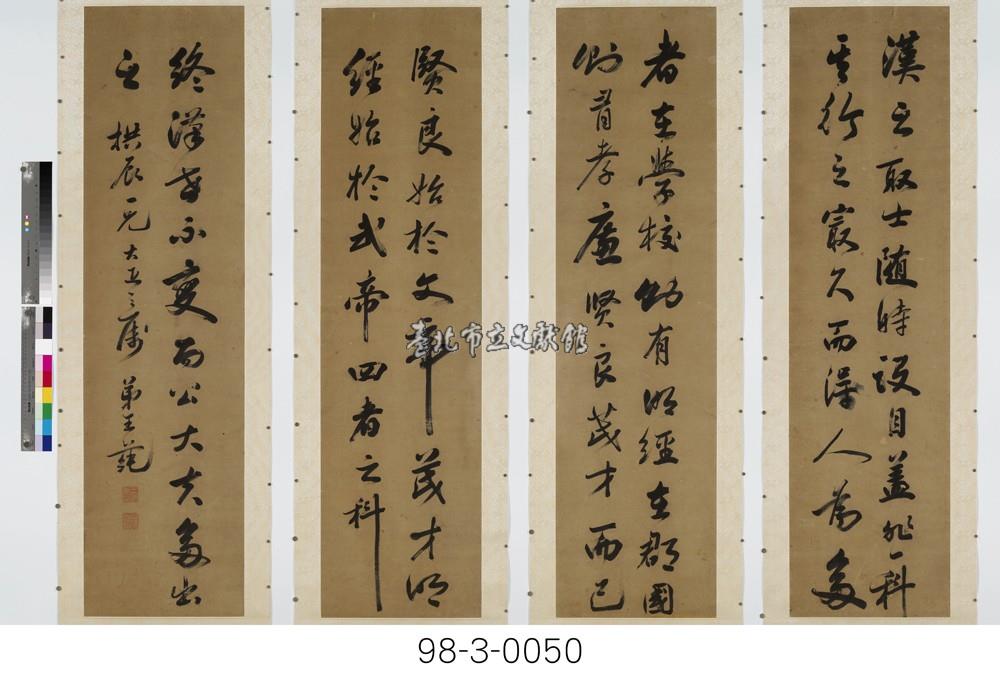 漢之取士隨時設目蓋非一科
其行之最久而得人為多
者在學校則有明經在郡國
則有孝廉賢良茂才而已
賢良始於文帝茂才明
經始於武帝四者之科
終漢世不變而公大夫多出
之 拱辰一兄大人之屬 弟王
臺北市立文獻館
98-3-0050